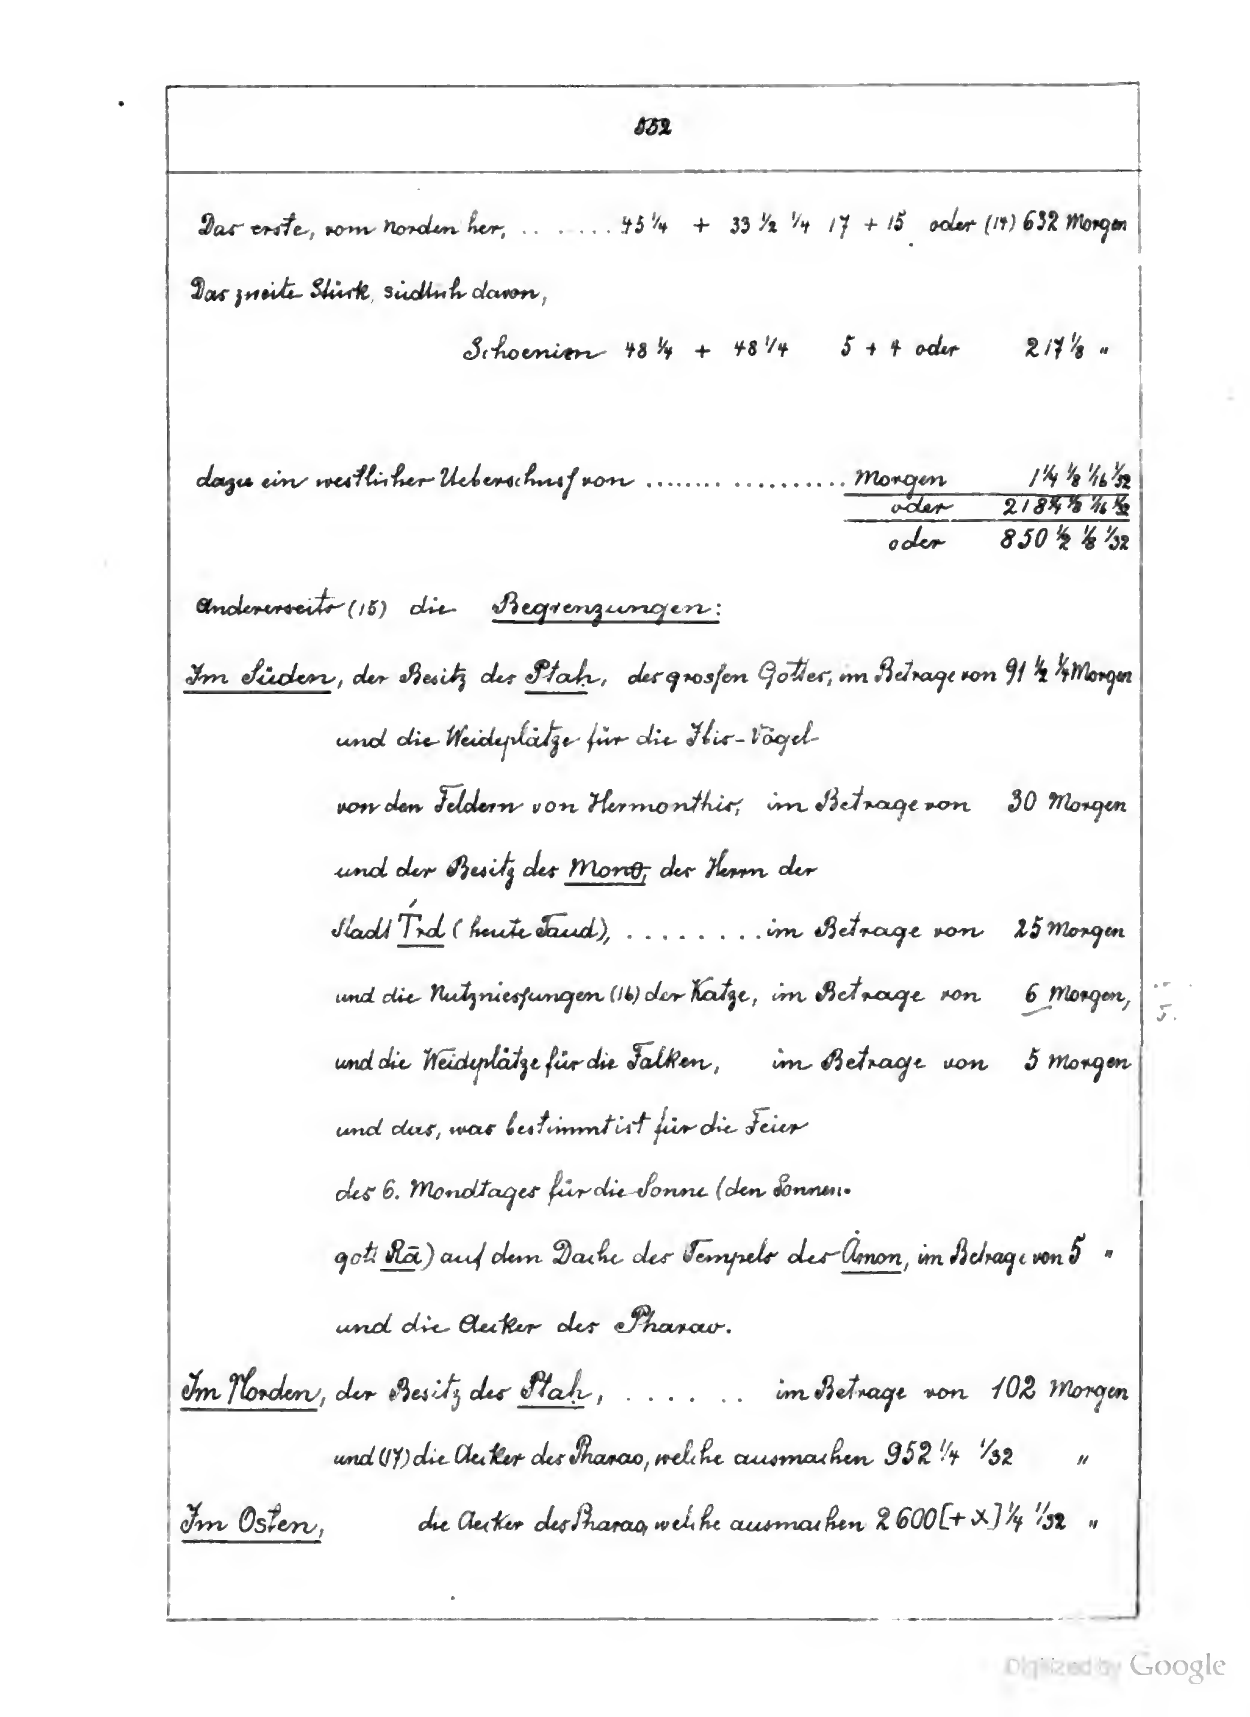 552
Das erste, vom Norden her, . . . . . . . 45 1/4 + 33 1/2 1/4 17 + 15 oder (14) 632 Morgen
Das zweite Stück, südlich davon,
Schoenien 48 1/4 + 48 1/4 5 + 4 oder 217 1/8 "
dazu ein westlicher Ueberschuss von .................... Morgen 1 1/4 1/8 1/16 1/32
oder 218 1/4 1/8 1/16 1/32
oder 850 1/2 1/8 1/32
Andererseits (15) die Begrenzungen:
Im Süden, der Besitz des Ptaḥ, des grossen Gottes, im Betrage von 91 1/2 1/4 Morgen
und die Weideplätze für die Ibis-Vögel
von den Feldern von Hermonthis, im Betrage von 30 Morgen
und der Besitz des Monθ, des Herrn der
Stadt Trd (heute Taud), . . . . . . . . . im Betrage von 25 Morgen
und die Nutzniessungen (16) der Katze, im Betrage von 6 Morgen,
5.
und die Weideplätze für die Falken, im Betrage von 5 Morgen
und das, was bestimmt ist für die Feier
des 6. Mondtages für die Sonne (den Sonnen-
gott Rā) auf dem Dache des Tempels des Åmon, im Betrage von 5 "
und die Aecker des Pharao.
Im Norden, der Besitz des Ptaḥ, . . . . . . . im Betrage von 102 Morgen
und (17) die Aecker des Pharao, welche ausmachen 952 1/4 1/32 "
Im Osten, die Aecker des Pharao, welche ausmachen 2600 [+ x] 1/4 1/32 "
Digitized by Google